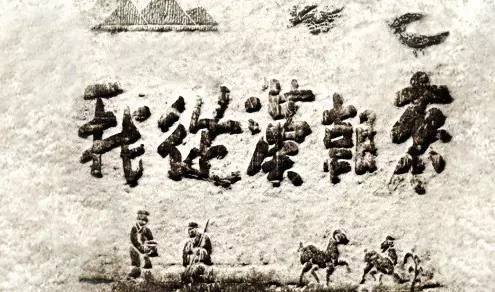 我從漢朝來